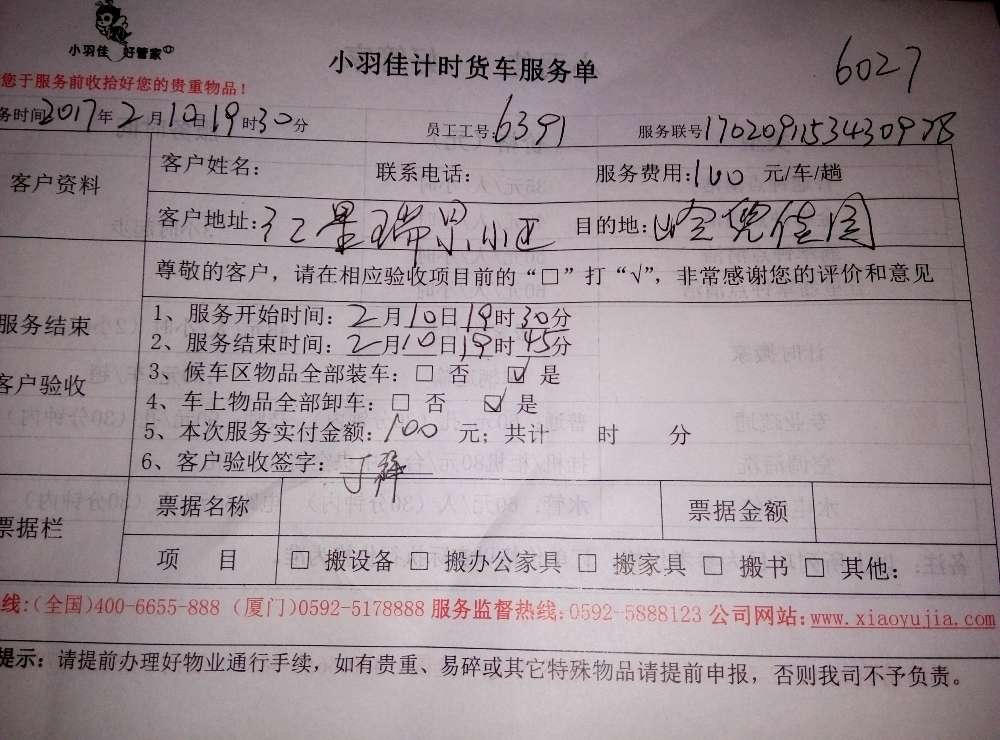 小羽佳 好管家
小羽佳计时货车服务单
6027
您于服务前收拾好您的贵重物品！
务时间2017年2月10日19时30分 员工工号：6391 服务联号
客户资料
客户姓名： 联系电话： 服务费用：100 元/车/趟
客户地址：江星瑞景小区 目的地：佳园
尊敬的客户，请在相应验收项目前的“□”打“√”，非常感谢您的评价和意见
服务结束
客户验收
1、服务开始时间：2月10日19时30分
2、服务结束时间：2月10日19时45分
3、候车区物品全部装车：□ 否 ☑ 是
4、车上物品全部卸车：□ 否 ☑ 是
5、本次服务实付金额：100 元；共计 时 分
6、客户验收签字：
票据栏
票据名称 票据金额
项 目 □ 搬设备 □ 搬办公家具 □ 搬家具 □ 搬书 □ 其他：
线：(全国)400-6655-888 (厦门)0592-5178888 服务监督热线：0592-5888123 公司网站：www.xiaoyujia.com
提示：请提前办理好物业通行手续，如有贵重、易碎或其它特殊物品请提前申报，否则我司不予负责。